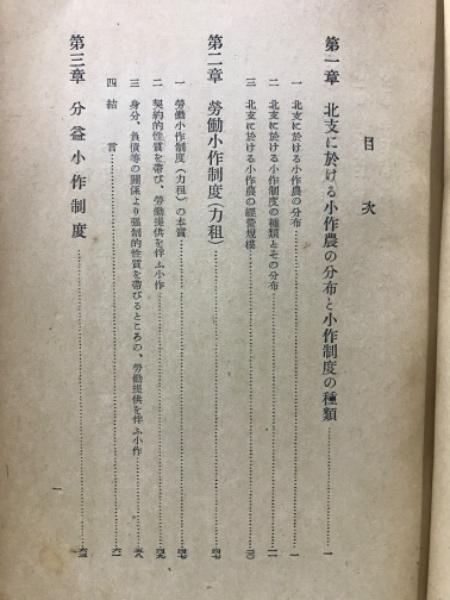 目次
第一章 北支に於ける小作農の分布と小作制度の種類……一
一 北支に於ける小作農の分布……一
二 北支に於ける小作制度の種類とその分布……二
三 北支に於ける小作農の經營規模……三〇
第二章 勞働小作制度(力租)……四七
一 勞働小作制度(力租)の本質……四七
二 契約的性質を帶び、勞働提供を伴ふ小作……四九
三 身分、負債等の關係より强制的性質を帶びるところの、勞働提供を伴ふ小作……五八
四 結言……六一
第三章 分益小作制度……六三
一